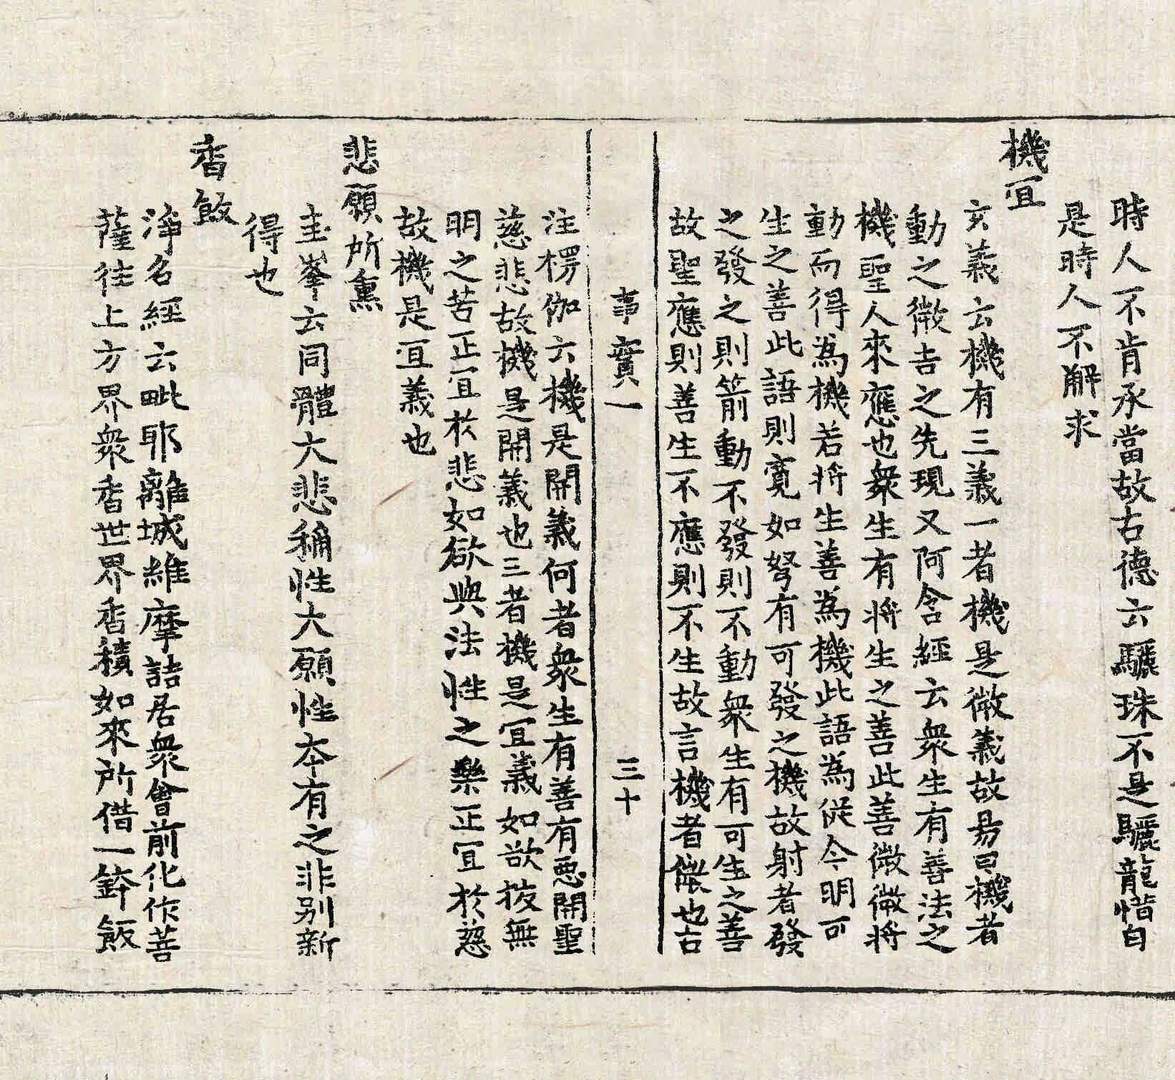 時人不肯承當故古德云驪珠不是驪龍惜自
是時人不解求
機宜
玄義云機有三義一者機是微義故易曰機者
動之微吉之先現又阿含經云衆生有善法之
機聖人來應也衆生有將生之善此善微微將
動而得為機若將生善為機此語為促今明可
生之善此語則寬如弩有可發之機故射者發
之發之則箭動不發則不動衆生有可生之善
故聖應則善生不應則不生故言機者微也古
事實一 三十
注楞伽云機是関義何者衆生有善有惡関聖
慈悲故機是関義也三者機是宜義如欲拔無
明之苦正宜於悲如欲與法性之樂正宜於慈
故機是宜義也
悲願所熏
圭峯云同體大悲稱性大願性本有之非别新
得也
香飯
淨名經云毗耶離城維摩詰居衆會前化作菩
薩往上方界衆香世界香積如來所借一鉢飯